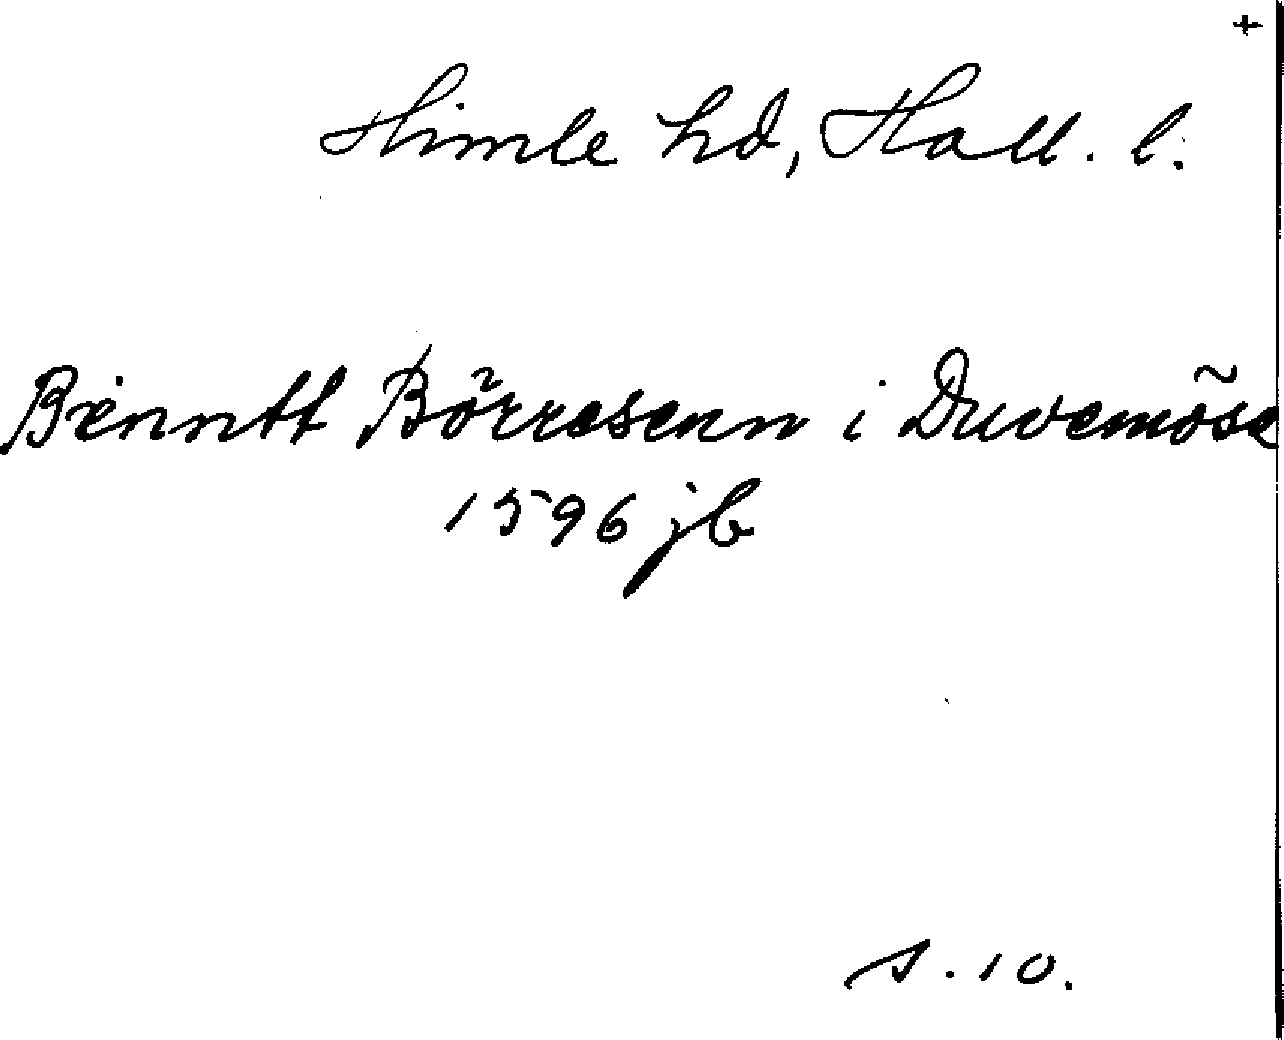 +
Himle hd, Hall. l.
Bienntt Börresenn i Duvemöse
1596 jb
s. 10.